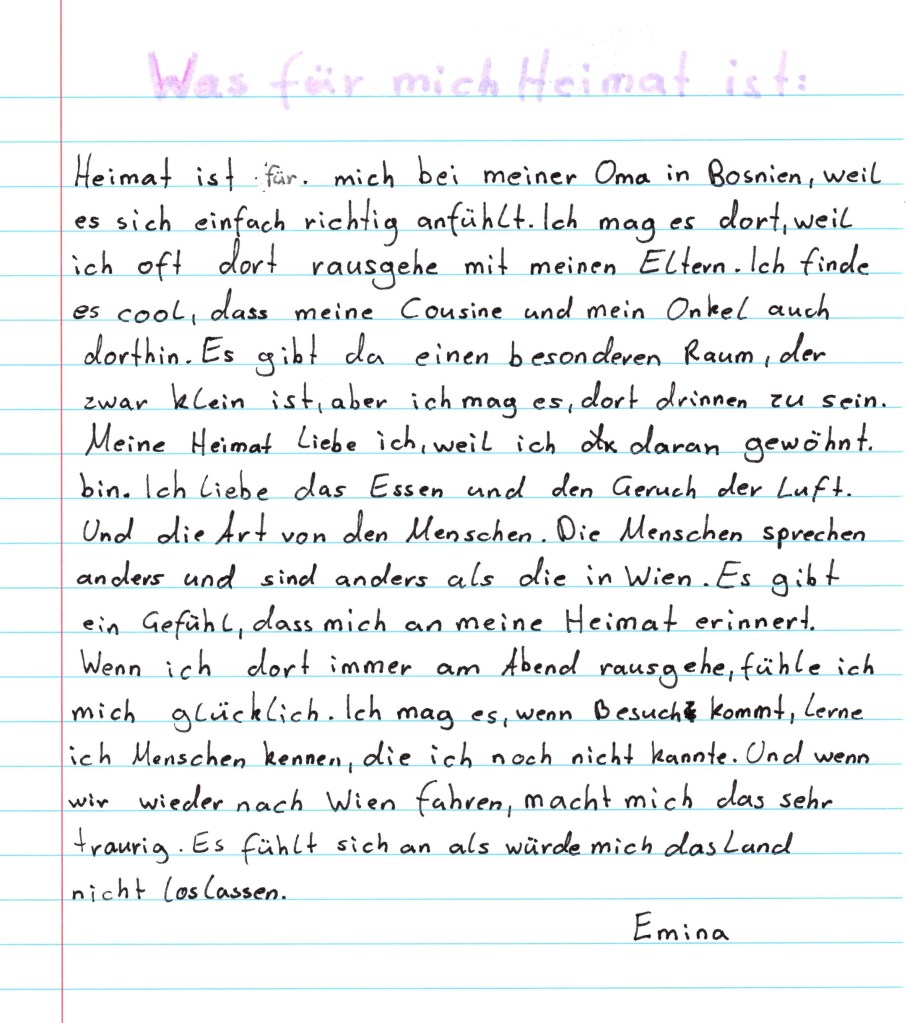 Was für mich Heimat ist:
Heimat ist für mich bei meiner Oma in Bosnien, weil
es sich einfach richtig anfühlt. Ich mag es dort, weil
ich oft dort rausgehe mit meinen Eltern. Ich finde
es cool, dass meine Cousine und mein Onkel auch
dorthin. Es gibt da einen besonderen Raum, der
zwar klein ist, aber ich mag es, dort drinnen zu sein.
Meine Heimat Liebe ich, weil ich daran gewöhnt.
bin. Ich Liebe das Essen und den Geruch der Luft.
Und die Art von den Menschen. Die Menschen sprechen
anders und sind anders als die in Wien. Es gibt
ein Gefühl, dass mich an meine Heimat erinnert.
Wenn ich dort immer am Abend rausgehe, fühle ich
mich glücklich. Ich mag es, wenn Besuch kommt, Lerne
ich Menschen kennen, die ich noch nicht kannte. Und wenn
wir wieder nach Wien fahren, macht mich das sehr
traurig. Es fühlt sich an als würde mich das Land
nicht loslassen.
Emina